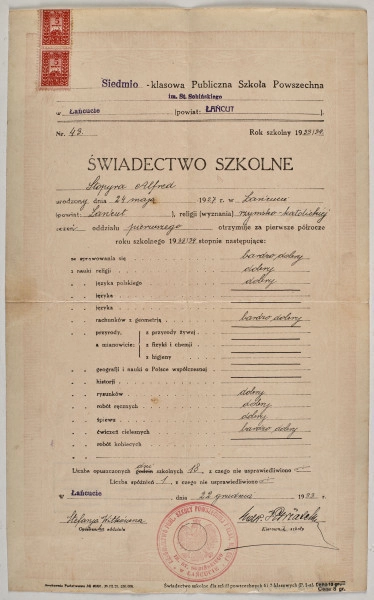 Siedmio -klasowa Publiczna Szkoła Powszechna
im. St. Sobińskiego
w Łańcucie (powiat: ŁAŃCUT )
Nr. 43. Rok szkolny 1933/34.
ŚWIADECTWO SZKOLNE
Stopyra Alfred
urodzony dnia 24 maja 1927 r. w Łańcucie
(powiat: Łańcut ), religii (wyznania) rzymsko-katolickiej
uczeń oddziału pierwszego otrzymuje za pierwsze półrocze
roku szkolnego 1933/34 stopnie następujące:
za sprawowanie się bardzo dobry
z nauki religii dobry
„ języka polskiego dobry
„ języka
„ języka
„ rachunków z geometrią bardzo dobry
„ przyrody, z przyrody żywej
a mianowicie: z fizyki i chemji
z higjeny
„ geografii i nauki o Polsce współczesnej
„ historji
„ rysunków dobry
„ robót ręcznych dobry
„ śpiewu dobry
„ ćwiczeń cielesnych bardzo dobry
„ robót kobiecych
Liczba opuszczonych dni godzin szkolnych 13, z czego nie usprawiedliwiono
Liczba spóźnień 1, z czego nie usprawiedliwiono
w Łańcucie dnia 22 grudnia 1933 r.
Stefanja
Opiekunka oddziału Kierownik szkoły